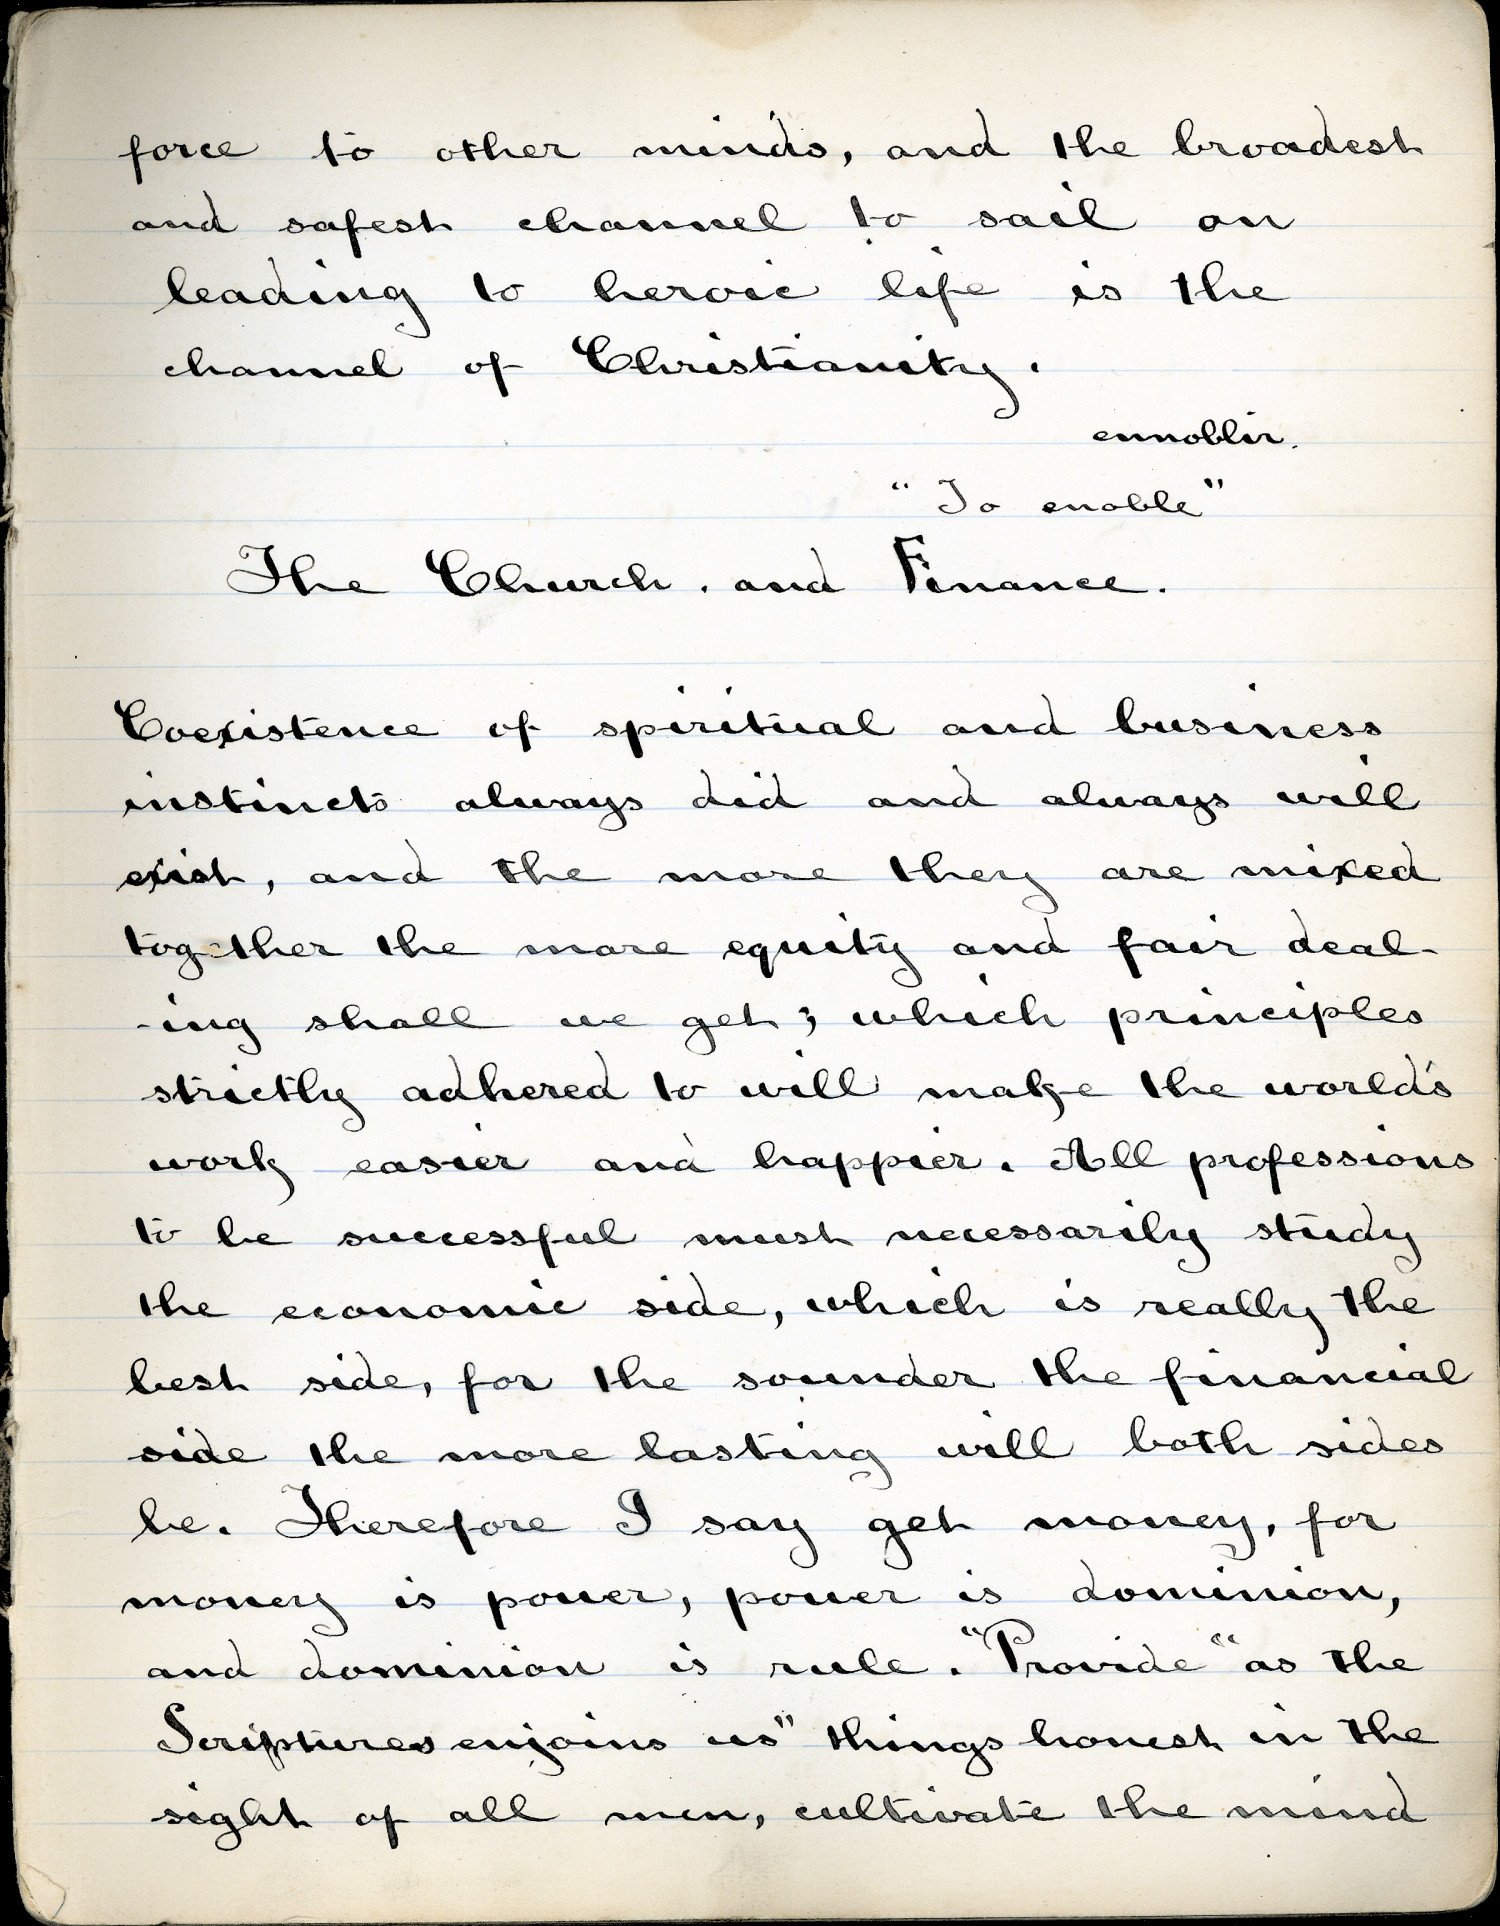 force to other minds, and the broadest
and safest channel to sail on
leading to heroic life is the
channel of Christianity.
ennoblir.
"To enoble"
The Church. and Finance.
Coexistence of spiritual and business
instincts always did and always will
exist, and the more they are mixed
together the more equity and fair deal-
-ing shall we get; which principles
strictly adhered to will make the world's
work easier and happier. All professions
to be successful must necessarily study
the economic side, which is really the
best side, for the sounder the financial
side the more lasting will both sides
be. Therefore I say get money, for
money is power, power is dominion,
and dominion is rule. "Provide" as the
Scriptures enjoins us" things honest in the
sight of all men, cultivate the mind